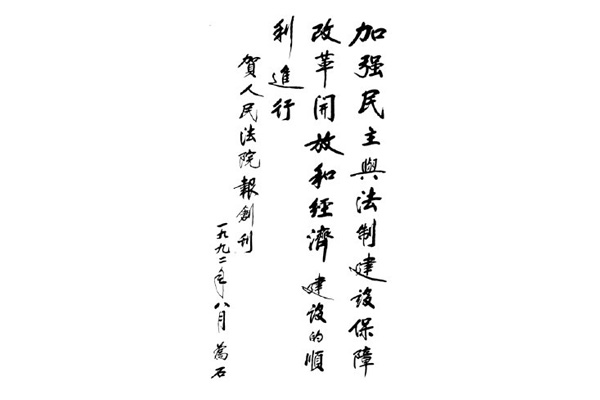 加强民主與法制建设保障
改革開放和經濟建设的順
利進行
賀人民法院報創刊
一九九二年八月 喬石